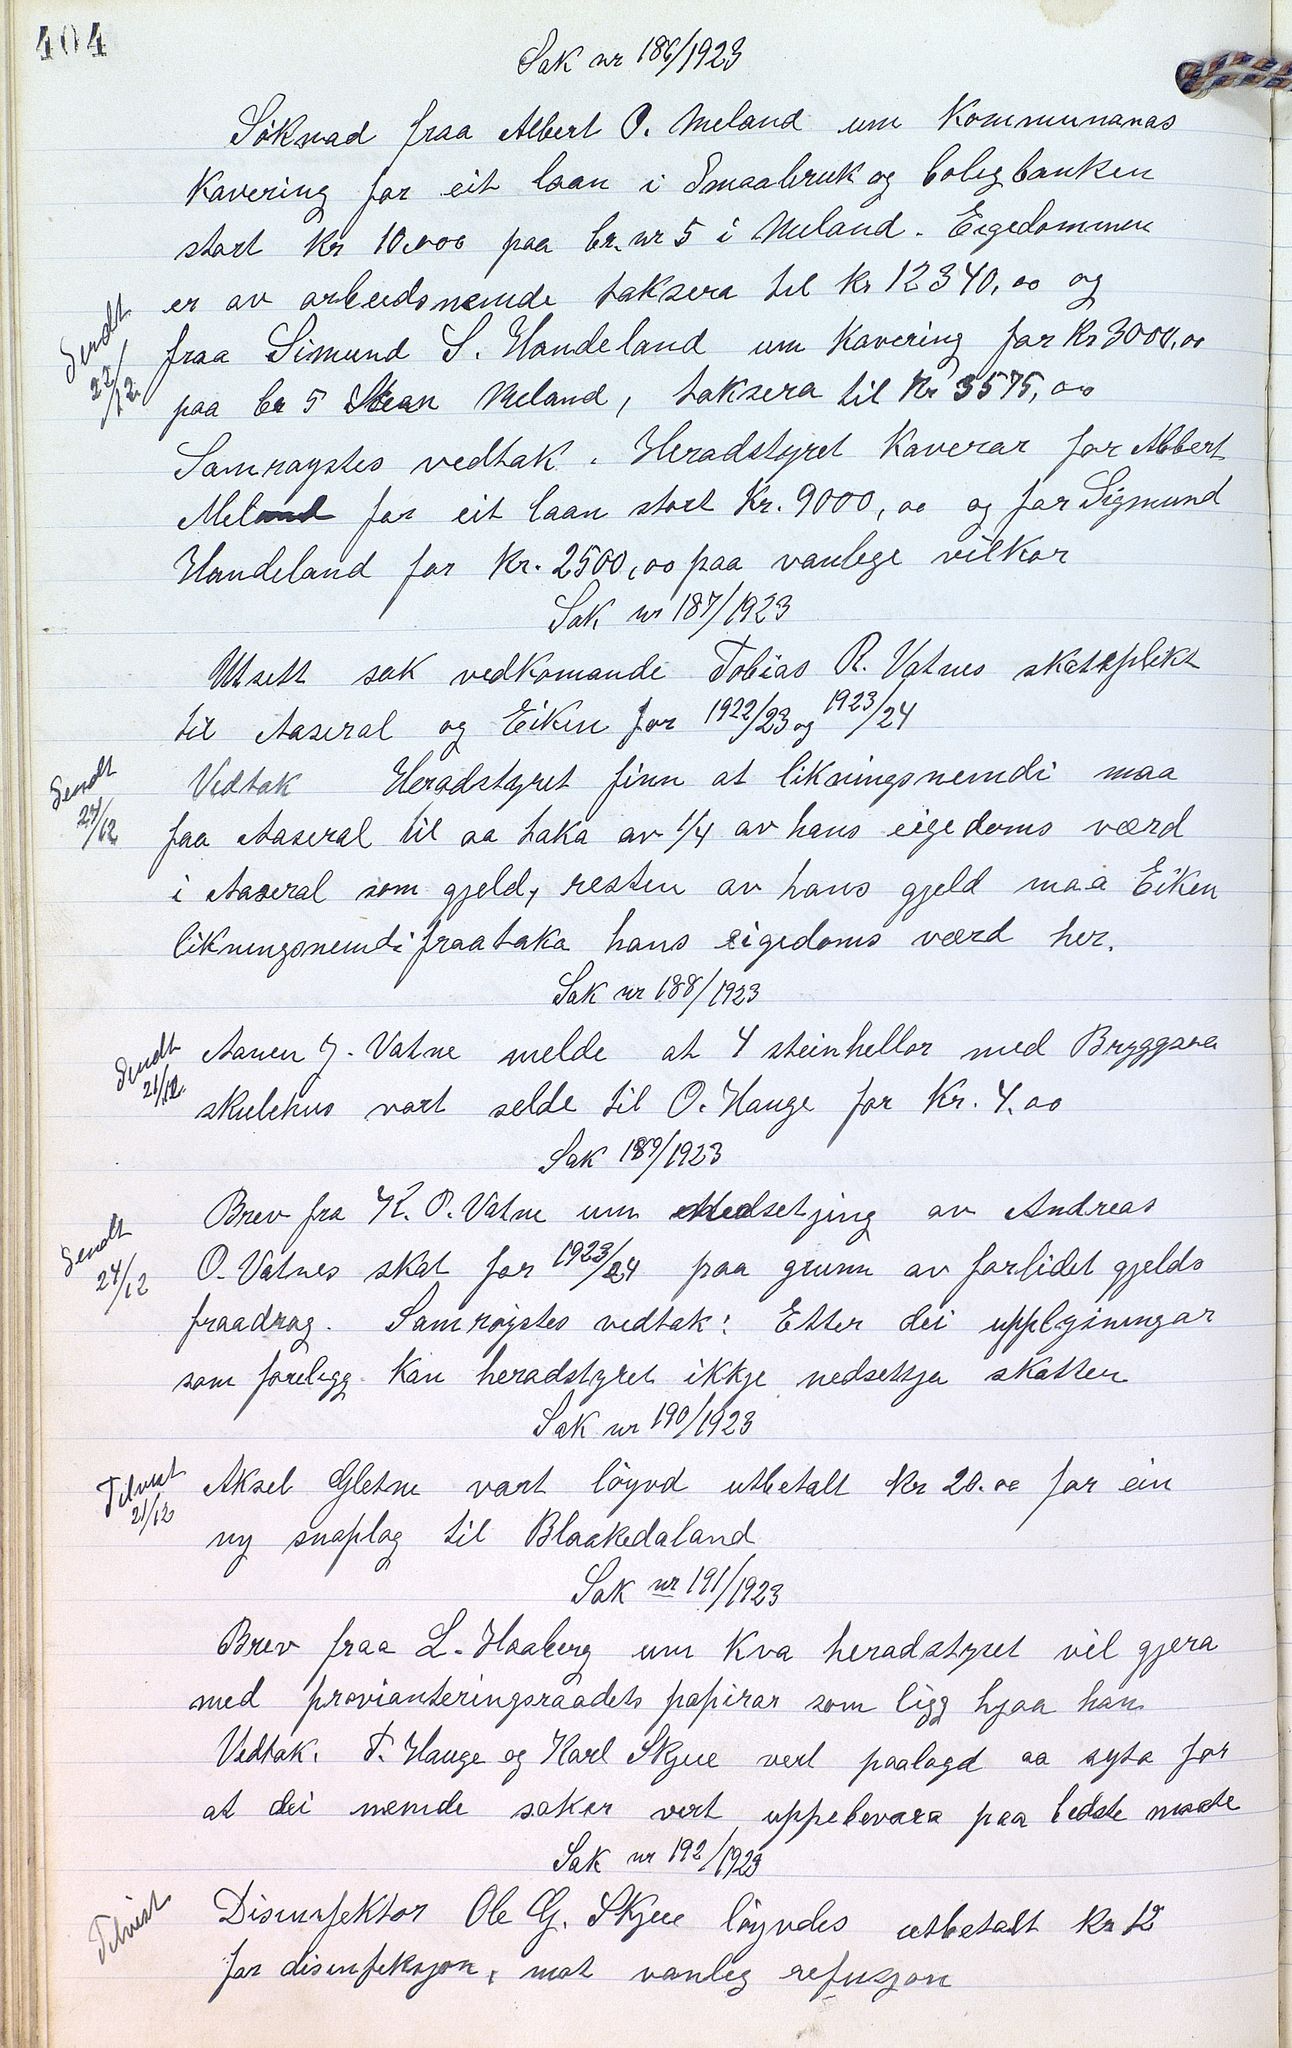 404
Sak nr 186/1923
Söknad fraa Albert O. Meland um Kommunanas
Kavering for eit laan i Smaabruk og boligbanken
stort kr 10.000 paa br. nr 5 i Meland. Eigedommen
er av arbeidsnemde taksera til kr 12340,00 og
Sendt
22/12
fraa Simund S. Handeland um Kavering for kr 3000,00
paa br 5 Meland, taksera til kr 3575,00
Samrøystes vedtak. Heradstyret Kaverar for Albert
Meland for eit laan stort kr. 9000,00 og for Sigmund
Handeland for kr. 2500,00 paa vanlege vilkor
Sak nr 187/1923
Utsett sak vedkomande Tobias R. Vatnes skatteplikt
til Aaseral og Eiken for 1922/23 og 1923/24
Sendt
24/12
Vedtak Heradstyret finn at likningsnemdi maa
faa Aaseral til aa taka av 1/4 av hans eigedoms værd
i Aaseral som gjeld, resten av hans gjeld maa Eiken
likningsnemdi fraataka hans eigedoms værd her.
Sak nr 188/1923
Sendt
21/12.
Aanen J. Vatne melde at 4 steinhellor med Bryggsaa
skulehus vart selde til O. Hauge for Kr. 4.00
Sak 189/1923
Sendt
24/12
Brev fra K. O. Vatne um Nedsetjing av Andreas
O. Vatnes skat for 1923/24 paa grunn av forlidet gjelds
fraadrag. Samröystes vedtak: Etter dei upplysningar
som forelegg kan heradstyret ikkje nedsetja skatten
Sak nr 190/1923
Tilvist
21/12
Aksel Gletne vart löyvd utbetalt kr 20.00 for ein
ny snøplog til Blaakedaland
Sak nr 191/1923
Brev fraa L. Haaberg um kva heradstyret vil gjera
med provianteringsraadets papirar som ligg hjaa han
Vedtak. T. Hauge og Karl Skjue vert paalagd aa syta for
at dei nemde saker vert uppbevara paa bedste maate
Sak nr 192/1923
Tilvist
Disinfektor Ole G. Skjue löyvdes utbetalt kr 12
for disinfeksjon, mot vanleg refusjon